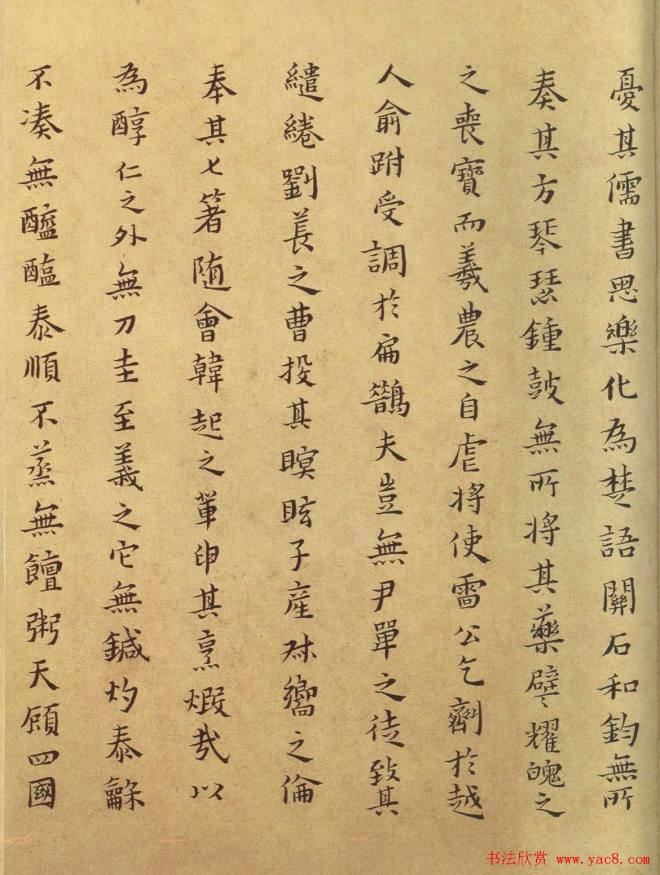 憂其儒書思樂化為楚語關石和鈞無所
奏其方琴瑟鍾鼓無所將其藥譬耀魄之
之喪寶而羲農之自虐將使雷公乞劑於越
人俞跗受調於扁鵲夫豈無尹單之徒致其
繾綣劉萇之曹投其瞑眩子產叔嚮之倫
奉其匕箸隨會韓起之單申其烹煅哉以
為醇仁之外無刀圭至義之它無鍼灼泰龢
不湊無醯醢泰順不蒸無饘粥天頎四國
书法欣赏 www.yac8.com